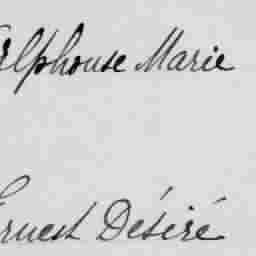 Alphonse Marie
Ernest Désiré